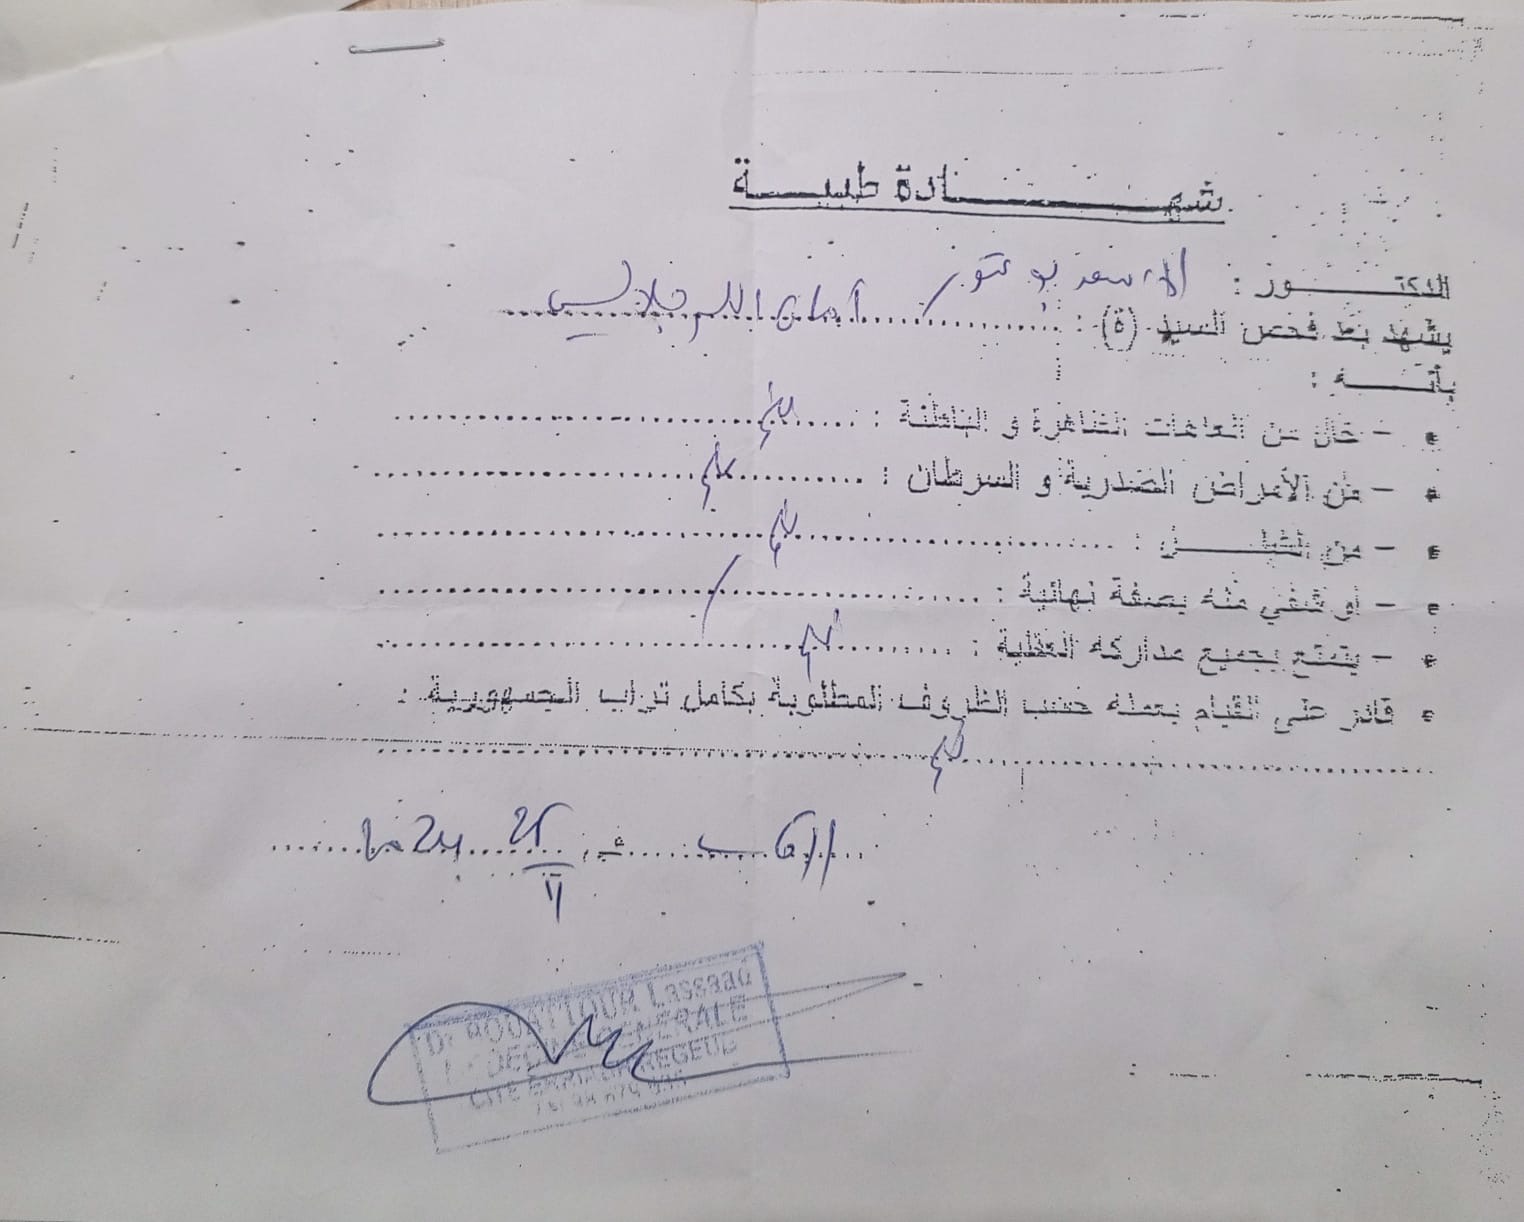 شهادة طبية
الدكتور : الأسعد بوعتور
يشهد بعد فحص السيد (ة) : أمان الله جلالي
بأنه :
- خال من العاهات الظاهرة و الباطنة : نعم
- من الأمراض الصدرية و السرطان : نعم
- من الشلل : نعم
- أو شفي منه بصفة نهائية : /
- يتمتع بجميع مداركه العقلية : نعم
قادر على القيام بعمله حسب الظروف المطلوبة بكامل تراب الجمهورية :
نعم
في 25
Dr BOUATTOUR Lassaad
MEDECINE GENERALE
REGEUB